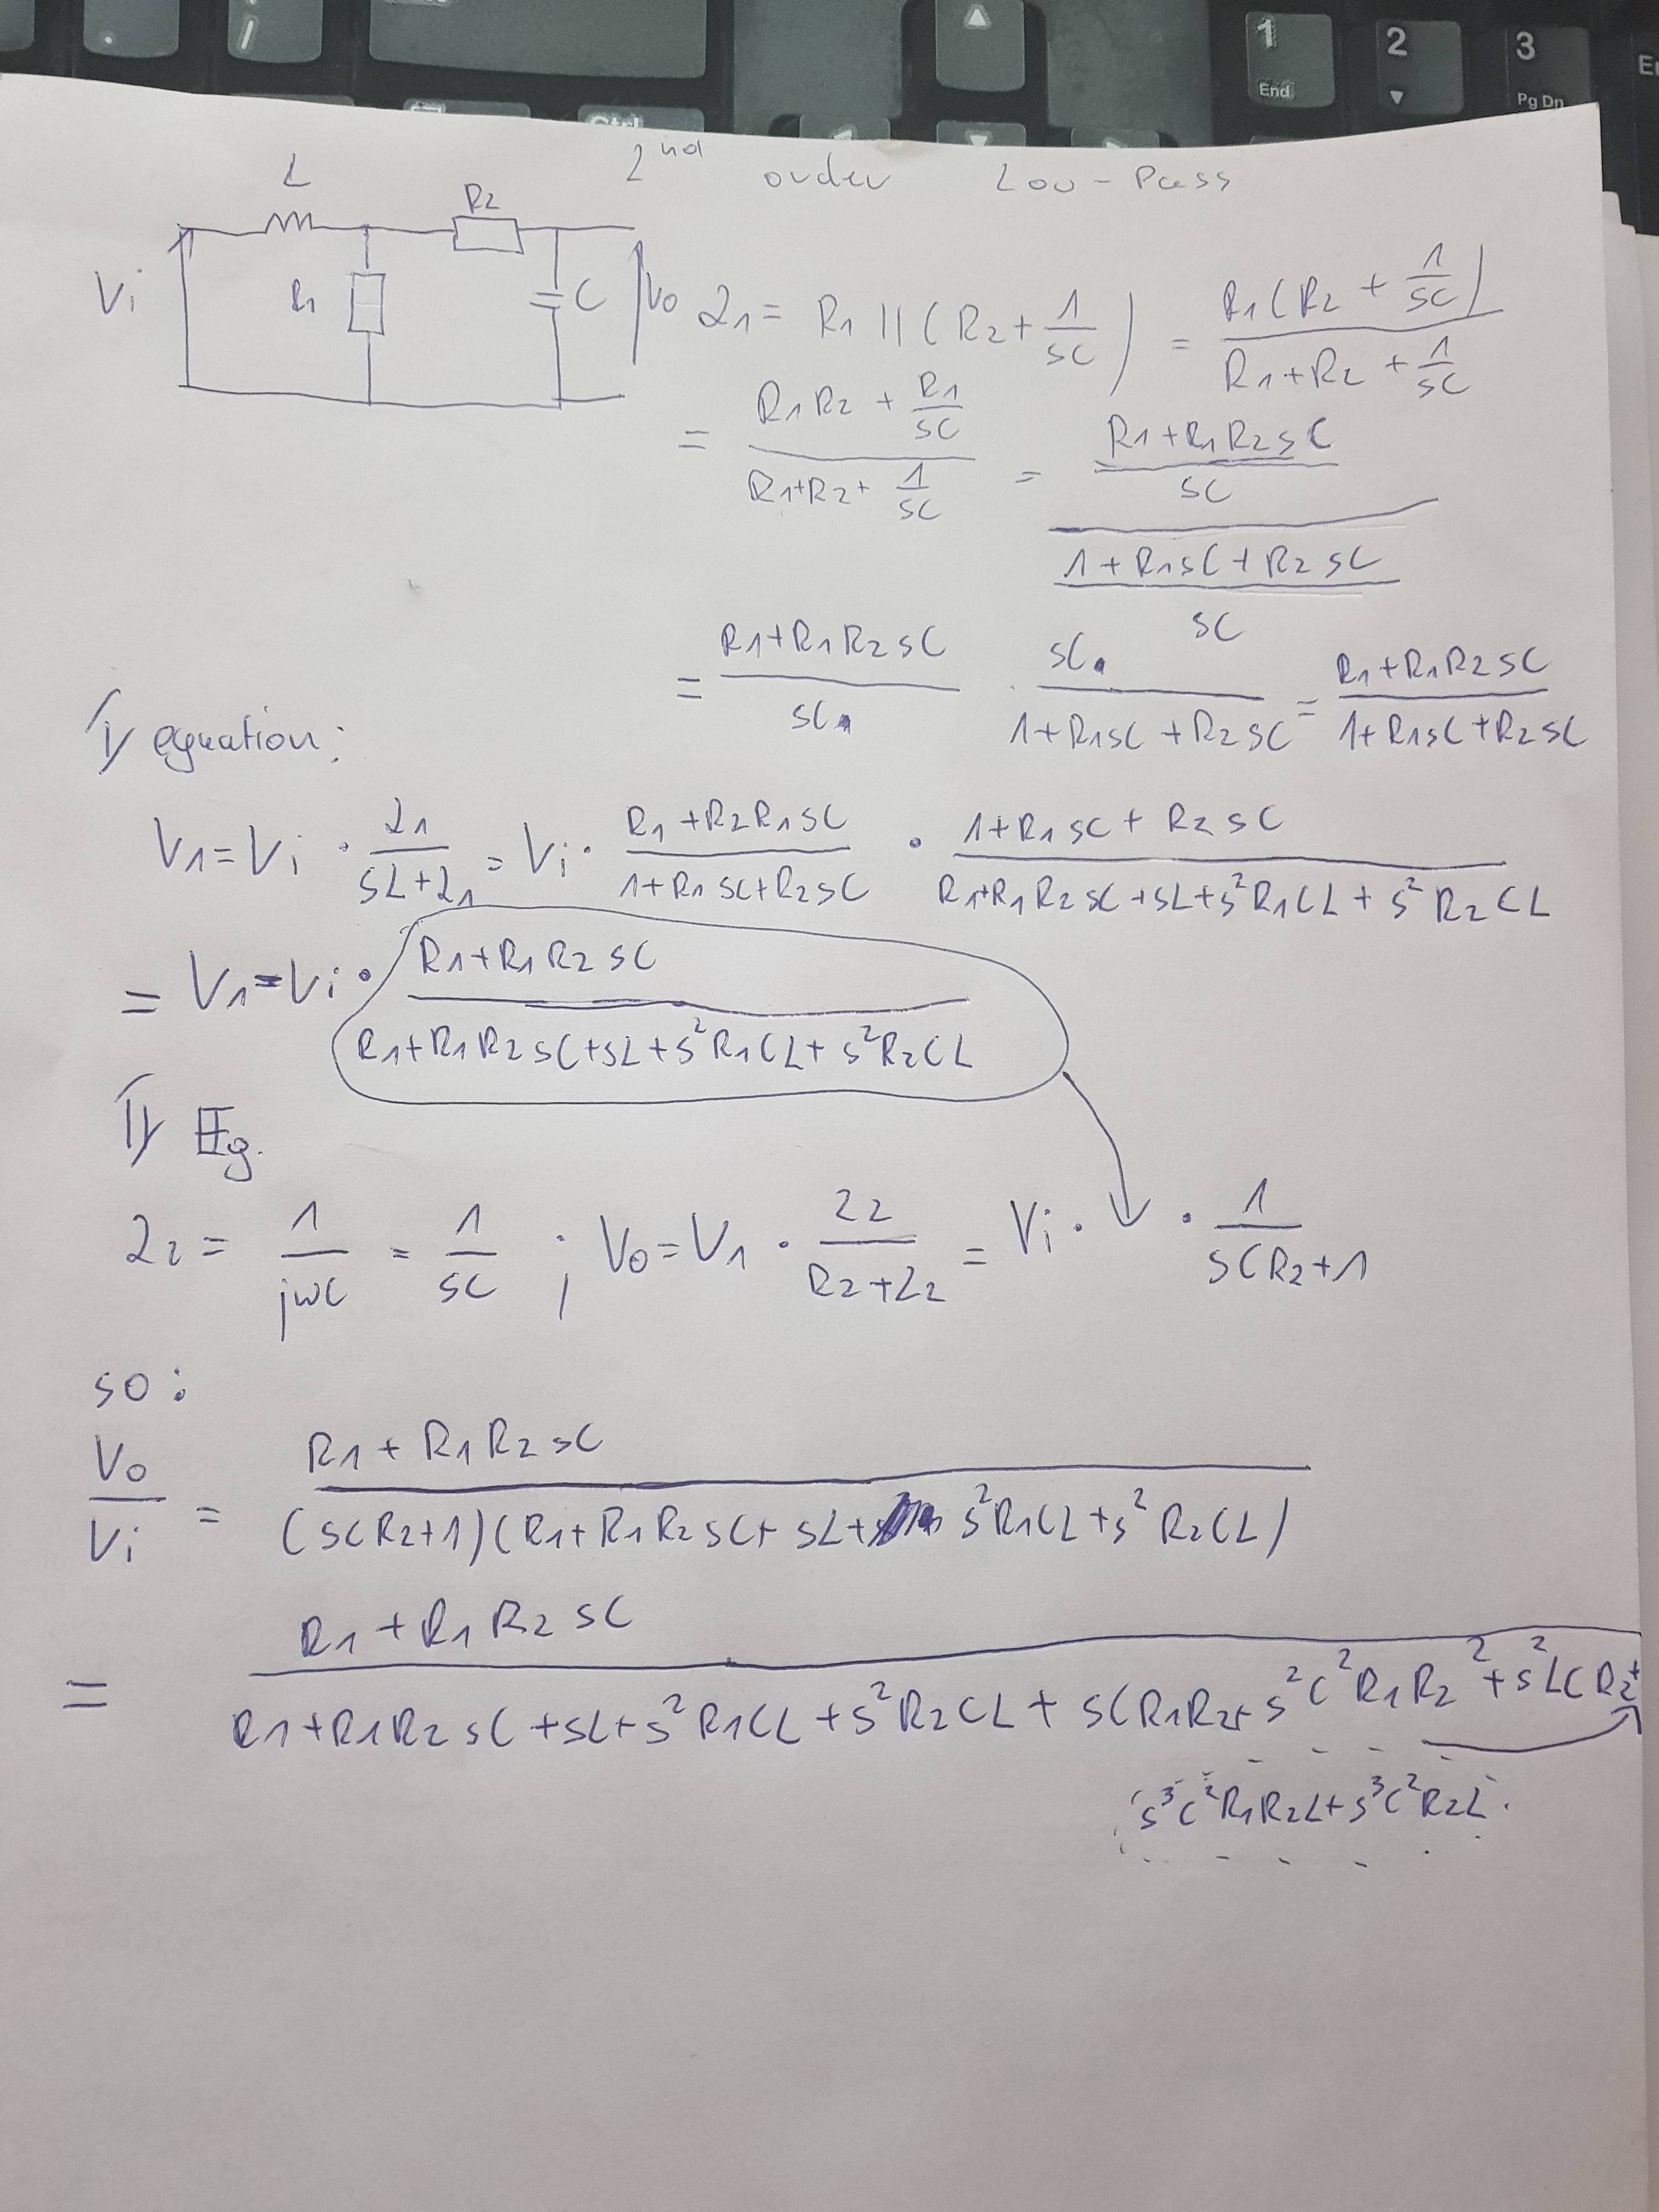 . / 1 End 2 3 Pg Dn
Ctrl
2nd order Low-Pass
L R2
Vi R1 C Vo
Z1 = R1 || (R2 + 1/sC) = R1(R2 + 1/sC) / R1+R2 + 1/sC
= R1R2 + R1/sC / R1+R2+ 1/sC = R1+R1R2sC / sC / 1+R1sC+R2sC / sC
= R1+R1R2sC / sC · sC / 1+R1sC+R2sC = R1+R1R2sC / 1+R1sC+R2sC
I) equation:
V1 = Vi · Z1 / sL+Z1 = Vi · R1+R2R1sC / 1+R1sC+R2sC · 1+R1sC+R2sC / R1+R1R2sC+sL+s²R1CL+s²R2CL
= V1=Vi · R1+R1R2sC / R1+R1R2sC+sL+s²R1CL+s²R2CL
II) Eq.
Z2 = 1/jwC = 1/sC ; Vo=V1 · Z2 / R2+Z2 = Vi · · 1 / sCR2+1
so:
Vo/Vi = R1+R1R2sC / (sCR2+1)(R1+R1R2sC+sL+ s²R1CL+s²R2CL)
= R1+R1R2sC / R1+R1R2sC+sL+s²R1CL+s²R2CL+sCR1R2+s²C²R1R2²+s²LCR2+
s³C²R1R2L+s³C²R2L.